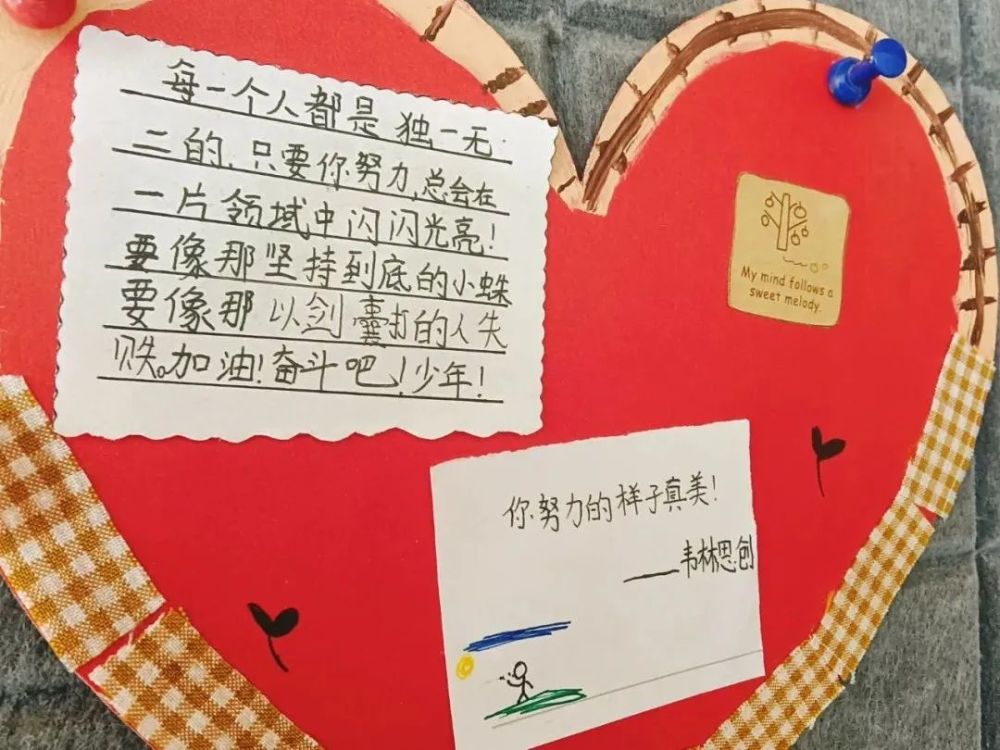 每一个人都是独一无
二的,只要你努力,总会在
一片领域中闪闪光亮!
要像那坚持到底的小蛛
要像那以剑囊打的人失
败。加油!奋斗吧,!少年!
My mind follows a
sweet melody.
你努力的样子真美!
——韦林思创